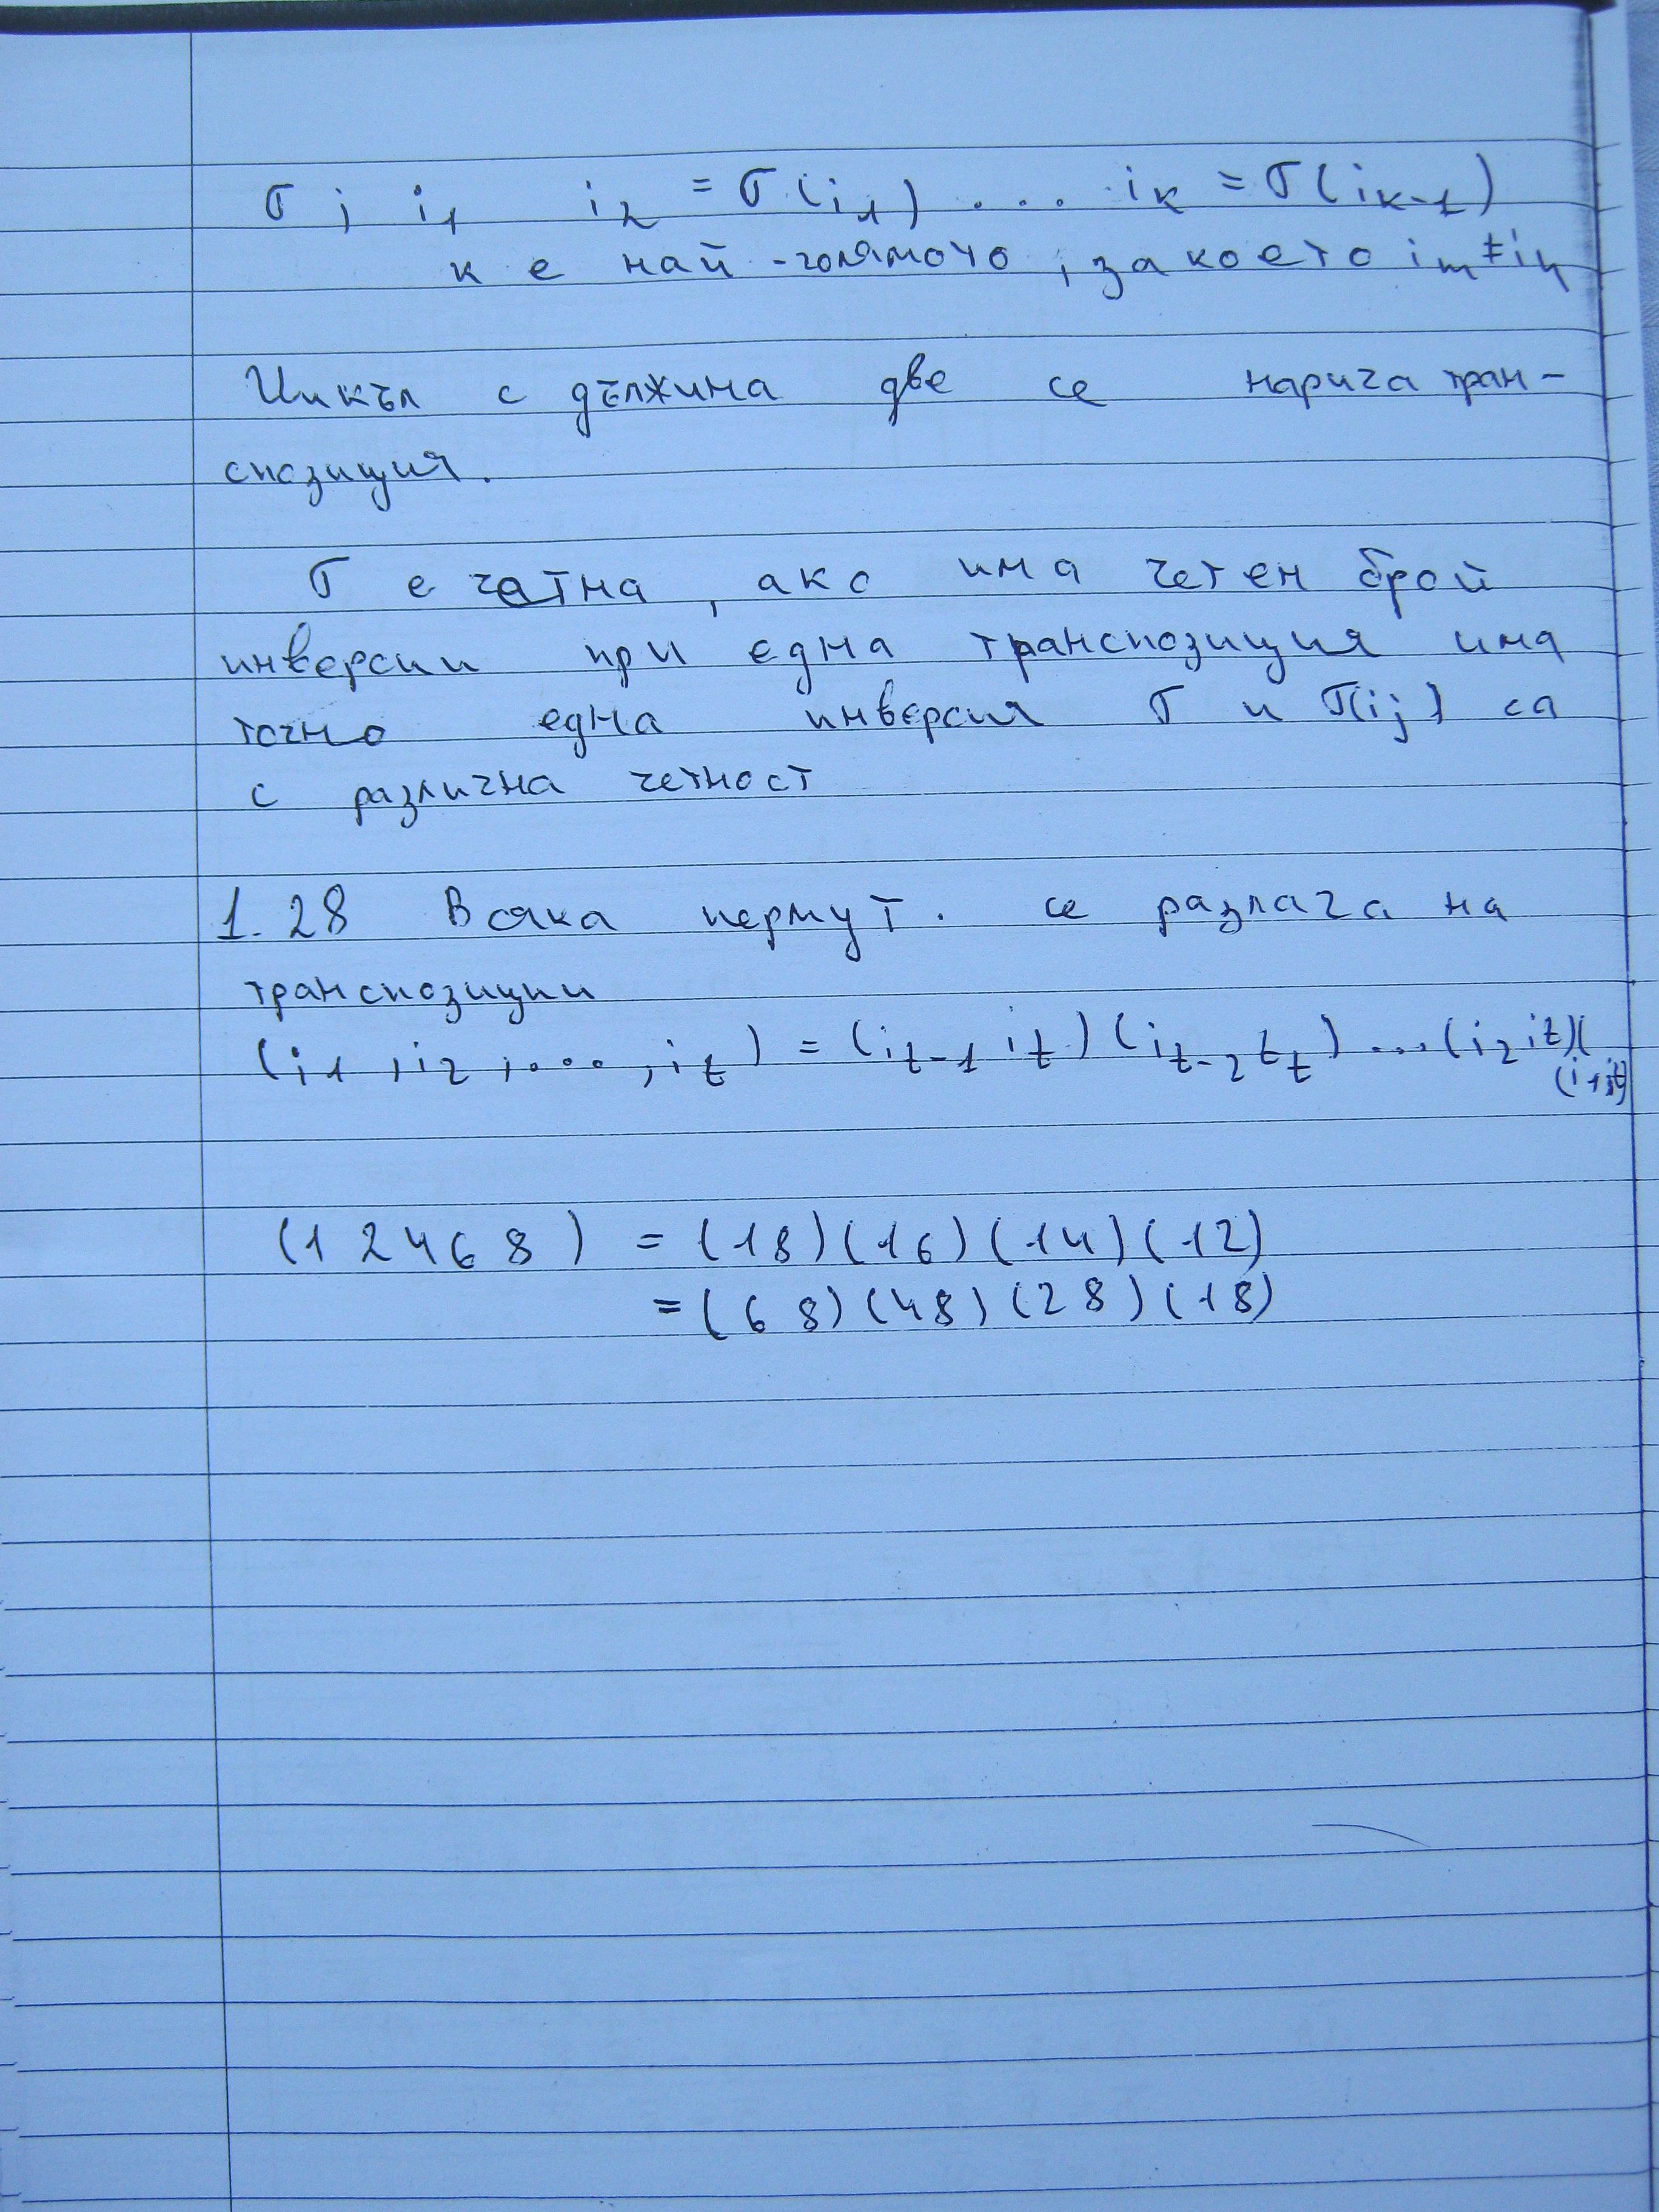 σ ; i₁ i₂ = σ(i₁) ... iₖ = σ(iₖ₋₁)
к е най-голямото, за което iₘ ≠ iₙ
Цикъл с дължина две се нарича тран-
спозиция.
σ е четна, ако има четен брой
инверсии при една транспозиция има
точно една инверсия σ и σ(ij) са
с различна четност
1.28 Всяка пермут. се разлага на
транспозиции
(i₁, i₂, ..., iₜ) = (iₜ₋₁ iₜ)(iₜ₋₂ tₜ) ... (i₂ iₜ)(
(i₁ iₜ)
(1 2 4 6 8) = (18)(16)(14)(12)
= (6 8)(48)(28)(18)